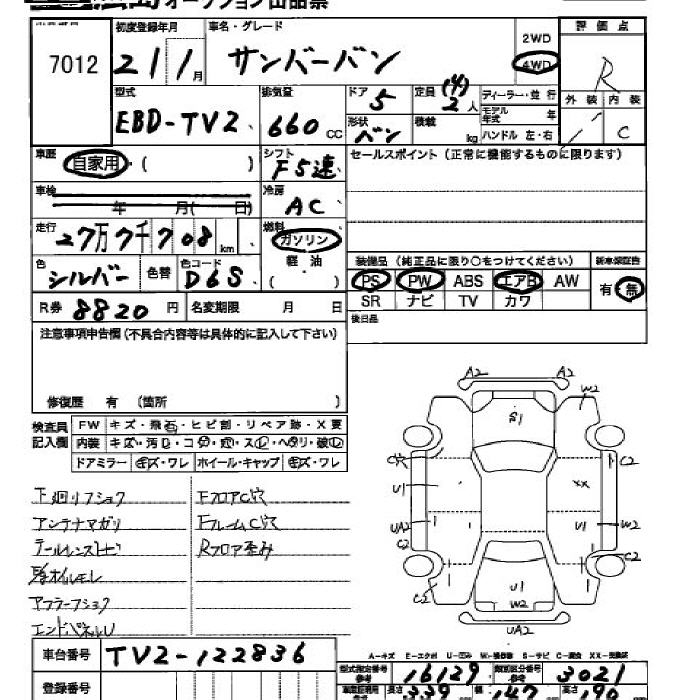 オークション出品票
7012
初度登録年月
21/1月
車名・グレード
サンバーバン
2WD
4WD
評価点
R
外装 内装
/ C
型式
EBD-TV2
排気量
660 cc
ドア
5
定員
(4)
2人
形状
バン
積載
kg
ディーラー・並行
モデル年式 年
ハンドル 左・右
車歴
自家用・( )
シフト
F5速
セールスポイント(正常に機能するものに限ります)
車検
年 月( 日)
冷房
AC
走行
27万7千708km
燃料
ガソリン
軽油
( )
色
シルバー
色替
色コード
D6S
装備品(純正品に限り○をつけてください)
新車保証書
PS PW ABS エアB AW
有・無
SR ナビ TV カワ
R券 8820円
名変期限 月 日
後日品
注意事項申告欄(不具合内容等は具体的に記入して下さい)
修復歴 有 (箇所 )
検査員記入欄
FW キズ・飛石・ヒビ割・リペア跡・X要
内装 キズ・汚レ・コゲ・穴・スレ・ヘタリ・破レ
ドアミラー キズ・ワレ ホイール・キャップ キズ・ワレ
下廻リフショク
FフロアC穴
アンテナマガリ
FフレームC穴
テールレンズヒビ
Rフロア歪み
オイルモレ
マフラーフショク
エンドパネルU
A2 A2
W2
S1
C穴
C2
U1
XX
UA2
U1
W2
C2
C2
C2
U1
W2
UA2
A-キズ E-エクボ U-凹み W-補修跡 S-サビ C-腐食 XX-交換済
車台番号
TV2-122836
型式指定番号 参考
16129
類別区分番号 参考
3021
登録番号
長さ 339cm
幅 147cm
高さ 190cm